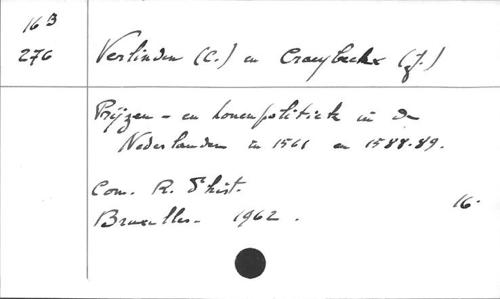 16 B
276
Verlinden (C.) en Craeybeckx (J.)
Prijzen- en lonenpolitiek in de
Nederlanden in 1561 en 1588-89.
Com. R. d'hist.
Bruxelles. 1962. 16.